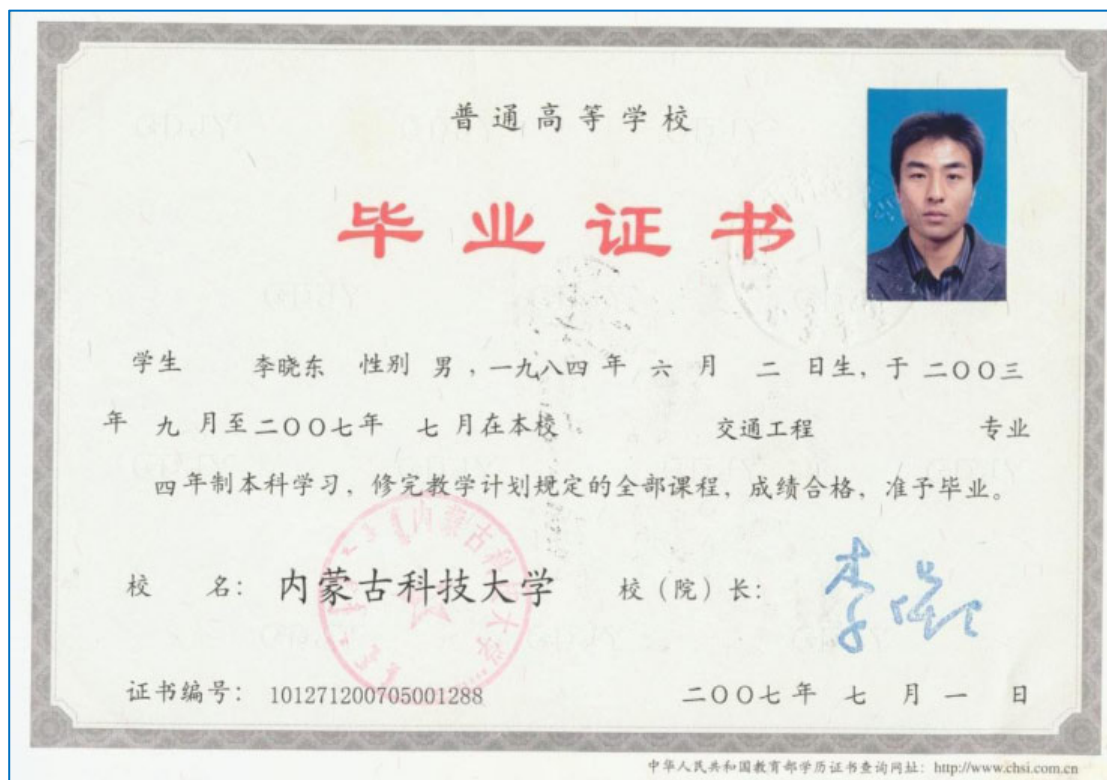 普通高等学校
毕业证书
学生 李晓东 性别 男,一九八四年 六 月 二 日生,于二〇〇三
年 九 月至二〇〇七年 七月在本校 交通工程 专业
四年制本科学习,修完教学计划规定的全部课程,成绩合格,准予毕业。
校 名: 内蒙古科技大学 校(院)长:
证书编号: 101271200705001288 二〇〇七年 七 月 一 日
中华人民共和国教育部学历证书查询网址: http://www.chsi.com.cn